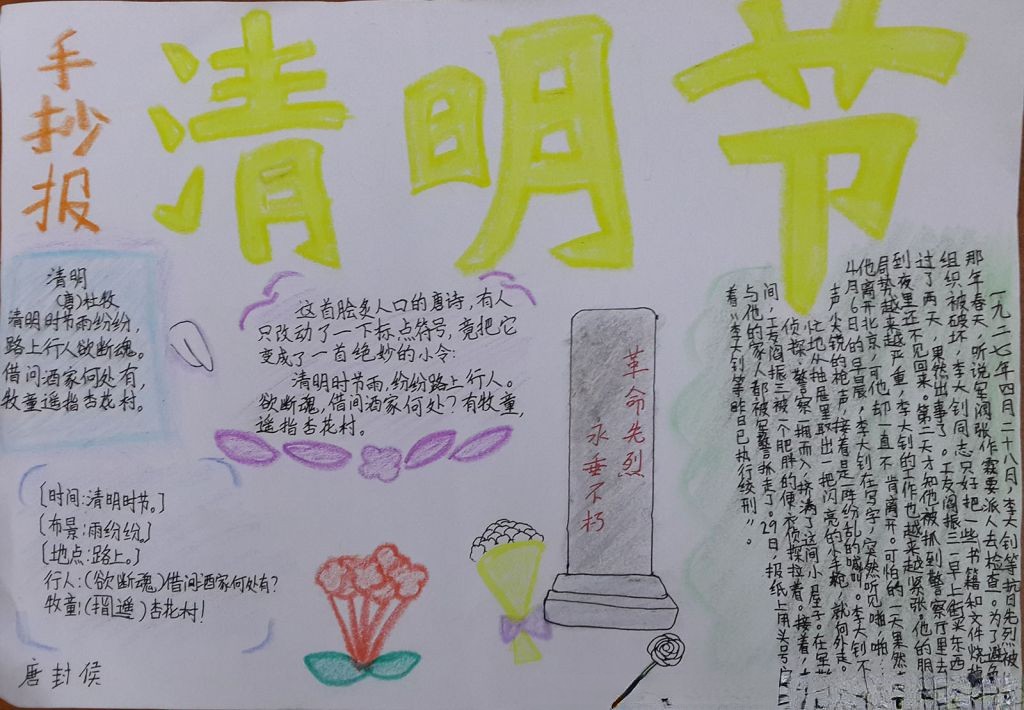 手抄报
清明节
清明
(唐)杜牧
清明时节雨纷纷,
路上行人欲断魂。
借问酒家何处有,
牧童遥指杏花村。
这首脍炙人口的唐诗,有人
只改动了一下标点符号,竟把它
变成了一首绝妙的小令:
清明时节雨,纷纷路上行人。
欲断魂,借问酒家何处?有牧童,
遥指杏花村。
[时间:清明时节。]
[布景:雨纷纷。]
[地点:路上。]
行人:(欲断魂)借问酒家何处有?
牧童:(指遥)杏花村!
唐封侯
革命先烈
永垂不朽
一九二七年四月二十八日,李大钊等抗日先烈被
那年春天,听说军阀张作霖要派人去检查。为了避免
组织被破坏,李大钊同志只好把一些书籍和文件烧掉
过了两天,果然出事了。工友阎振三一早上街买东西
到夜里还不见回来。第二天才知他被抓到警察厅里去
局势越来越严重,李大钊的工作也越来越紧张。他的朋
他离开北京,可他却一直不肯离开。可怕的一天果然
4月6日的早晨,李大钊在写字,突然听见啪,啪…
声尖锐的枪声,接着是一阵纷乱的喊叫。李大钊不
忙地从抽屉里取出一把闪亮的小手枪,就向外走。
侦探,警察一拥而入,挤满了这间小屋子。在里
间,工友阎振三被一个肥胖的便衣侦探拉着。接着,
与他的家人都被军警抓走了。29日,报纸上用头号
着“李大钊等昨日已执行绞刑”。